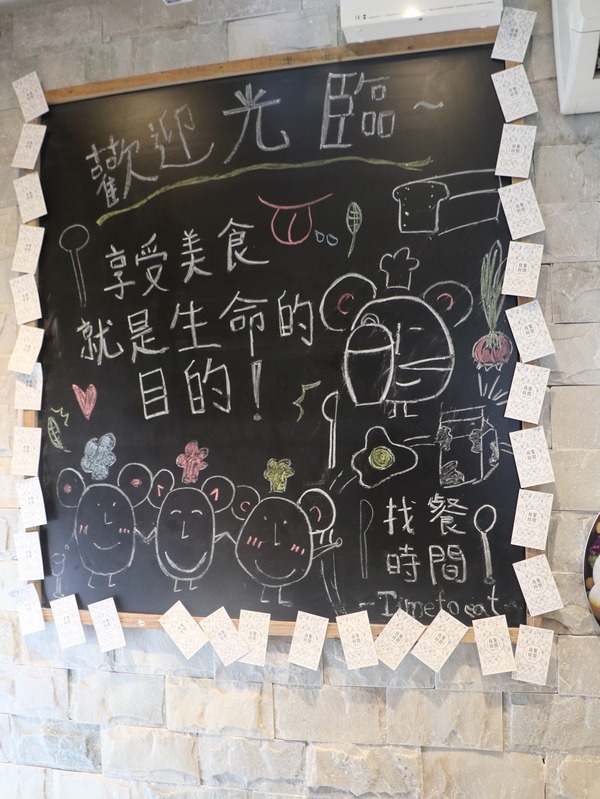 歡迎光臨~
享受美食
就是生命的
目的!
找餐
時間
~Time to eat